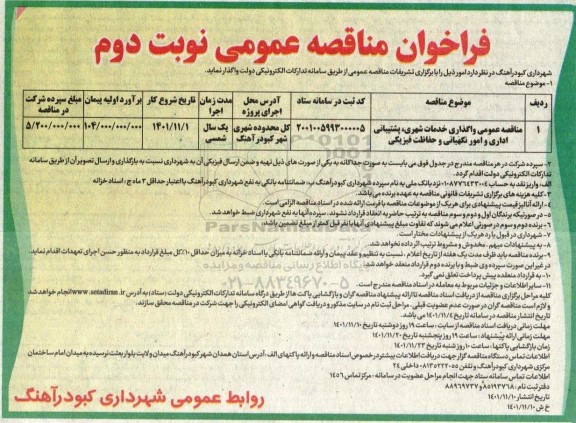 فراخوان مناقصه عمومی نوبت دوم
شهرداری کبودرآهنگ در نظر دارد امور ذیل را با برگزاری تشریفات مناقصه عمومی از طریق سامانه تدارکات الکترونیکی دولت واگذار نماید.
۱- موضوع مناقصه
ردیف موضوع مناقصه کد ثبت در سامانه ستاد آدرس محل اجرای پروژه مدت زمان اجرا تاریخ شروع کار برآورد اولیه پیمان مبلغ سپرده شرکت در مناقصه
۱ مناقصه عمومی واگذاری خدمات شهری، پشتیبانی اداری و امور نگهبانی و حفاظت فیزیکی ۲۰۰۱۰۰۵۹۹۳۰۰۰۰۰۵ کل محدوده شهری شهر کبودرآهنگ یک سال شمسی ۱۴۰۱/۱۱/۱ ۱۰۴/۰۰۰/۰۰۰/۰۰۰ ۵/۲۰۰/۰۰۰/۰۰۰
۲- سپرده شرکت در هر مناقصه مندرج در جدول فوق می بایست به صورت جداگانه به یکی از صورت های ذیل تهیه و ضمن ارسال فیزیکی آن به شهرداری نسبت به بارگذاری و ارسال تصویر آن از طریق سامانه
تدارکات الکترونیکی دولت اقدام گردد.
الف- واریز نقد به حساب نزد بانک ملی به نام سپرده شهرداری کبودرآهنگ ب- ضمانتنامه بانکی به نفع شهرداری کبودرآهنگ با اعتبار حداقل ۳ ماه ج- اسناد خزانه
۳- کلیه هزینه های برگزاری تشریفات قانونی مناقصه به عهده برنده می باشد.
۴- ارائه آنالیز قیمت پیشنهادی برای هر یک از موضوعات مناقصه با فرمت ارائه شده در اسناد مناقصه الزامی است.
۵- در صورتیکه برندگان اول و دوم و سوم مناقصه به ترتیب حاضر به انعقاد قرارداد نشوند، سپرده آنها به نفع شهرداری ضبط خواهد شد.
۶- برنده دوم و سوم در صورتی اعلام می شوند که تفاوت مبلغ پیشنهادی آنها با نفر قبل کمتر از مبلغ تضمین باشد.
۷- شهرداری در قبول یا رد هر یک از پیشنهادات مختار است.
۸- به پیشنهادات مبهم، مخدوش و مشروط ترتیب اثر داده نخواهد شد.
۹- برنده مناقصه باید ظرف مدت یک هفته از تاریخ اعلام، نسبت به تنظیم و عقد پیمان و ارائه ضمانتنامه بانکی یا اسناد خزانه به میزان حداقل ۱۰٪ کل مبلغ قرارداد به منظور حسن اجرای تعهدات اقدام نماید.
در غیر این صورت سپرده وی ضبط و با برنده دوم قرارداد منعقد خواهد شد.
۱۰- به قرارداد منعقده پیش پرداخت تعلق نمی گیرد.
۱۱- سایر اطلاعات و جزئیات مربوط به معامله در اسناد مناقصه مندرج است.
کلیه مراحل برگزاری مناقصه از دریافت اسناد مناقصه تا ارائه پیشنهاد مناقصه گران و بازگشایی پاکت ها از طریق درگاه سامانه تدارکات الکترونیکی دولت (ستاد) به آدرس www.setadiran.ir انجام خواهد شد
و لازم است مناقصه گران در صورت عدم عضویت قبلی، مراحل ثبت نام در سایت مذکور و دریافت گواهی امضای الکترونیکی را جهت شرکت در مناقصه محقق سازند.
تاریخ انتشار مناقصه در سامانه تاریخ ۱۴۰۱/۱۱/۴ می باشد.
مهلت زمانی دریافت اسناد مناقصه از سایت: ساعت ۱۹ روز دوشنبه تاریخ ۱۴۰۱/۱۱/۱۰
مهلت زمانی ارائه پیشنهاد: ساعت ۱۹ روز پنجشنبه تاریخ ۱۴۰۱/۱۱/۲۰
زمان بازگشایی پاکتها: ساعت ۱۰ روز شنبه تاریخ ۱۴۰۱/۱۱/۲۲
اطلاعات تماس دستگاه مناقصه گزار جهت دریافت اطلاعات بیشتر در خصوص اسناد مناقصه و ارائه پاکتهای الف: آدرس استان همدان شهر کبودرآهنگ میدان ولایت بلوار بعثت نرسیده به میدان امام ساختمان
مرکزی شهرداری کبودرآهنگ و تلفن ۰۸۱۳۵۲۲۲۰۵۵ داخلی ۲۴
اطلاعات تماس سامانه ستاد جهت انجام مراحل عضویت در سامانه: مرکز تماس ۱۴۵۶
دفتر ثبت نام: ۸۵۱۹۳۷۶۸ و ۸۸۹۶۹۷۳۷
تاریخ انتشار ۱۴۰۱/۱۱/۱۰
خ ش ۱۴۰۱/۱۱/۱۰
روابط عمومی شهرداری کبودرآهنگ